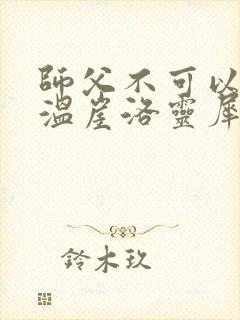 師父不可以
溫崖洛靈犀
鈴木玖